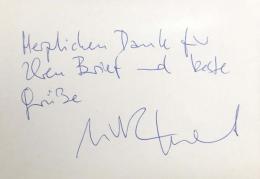 Herzlichen Dank für
Ihren Brief und beste
Grüße